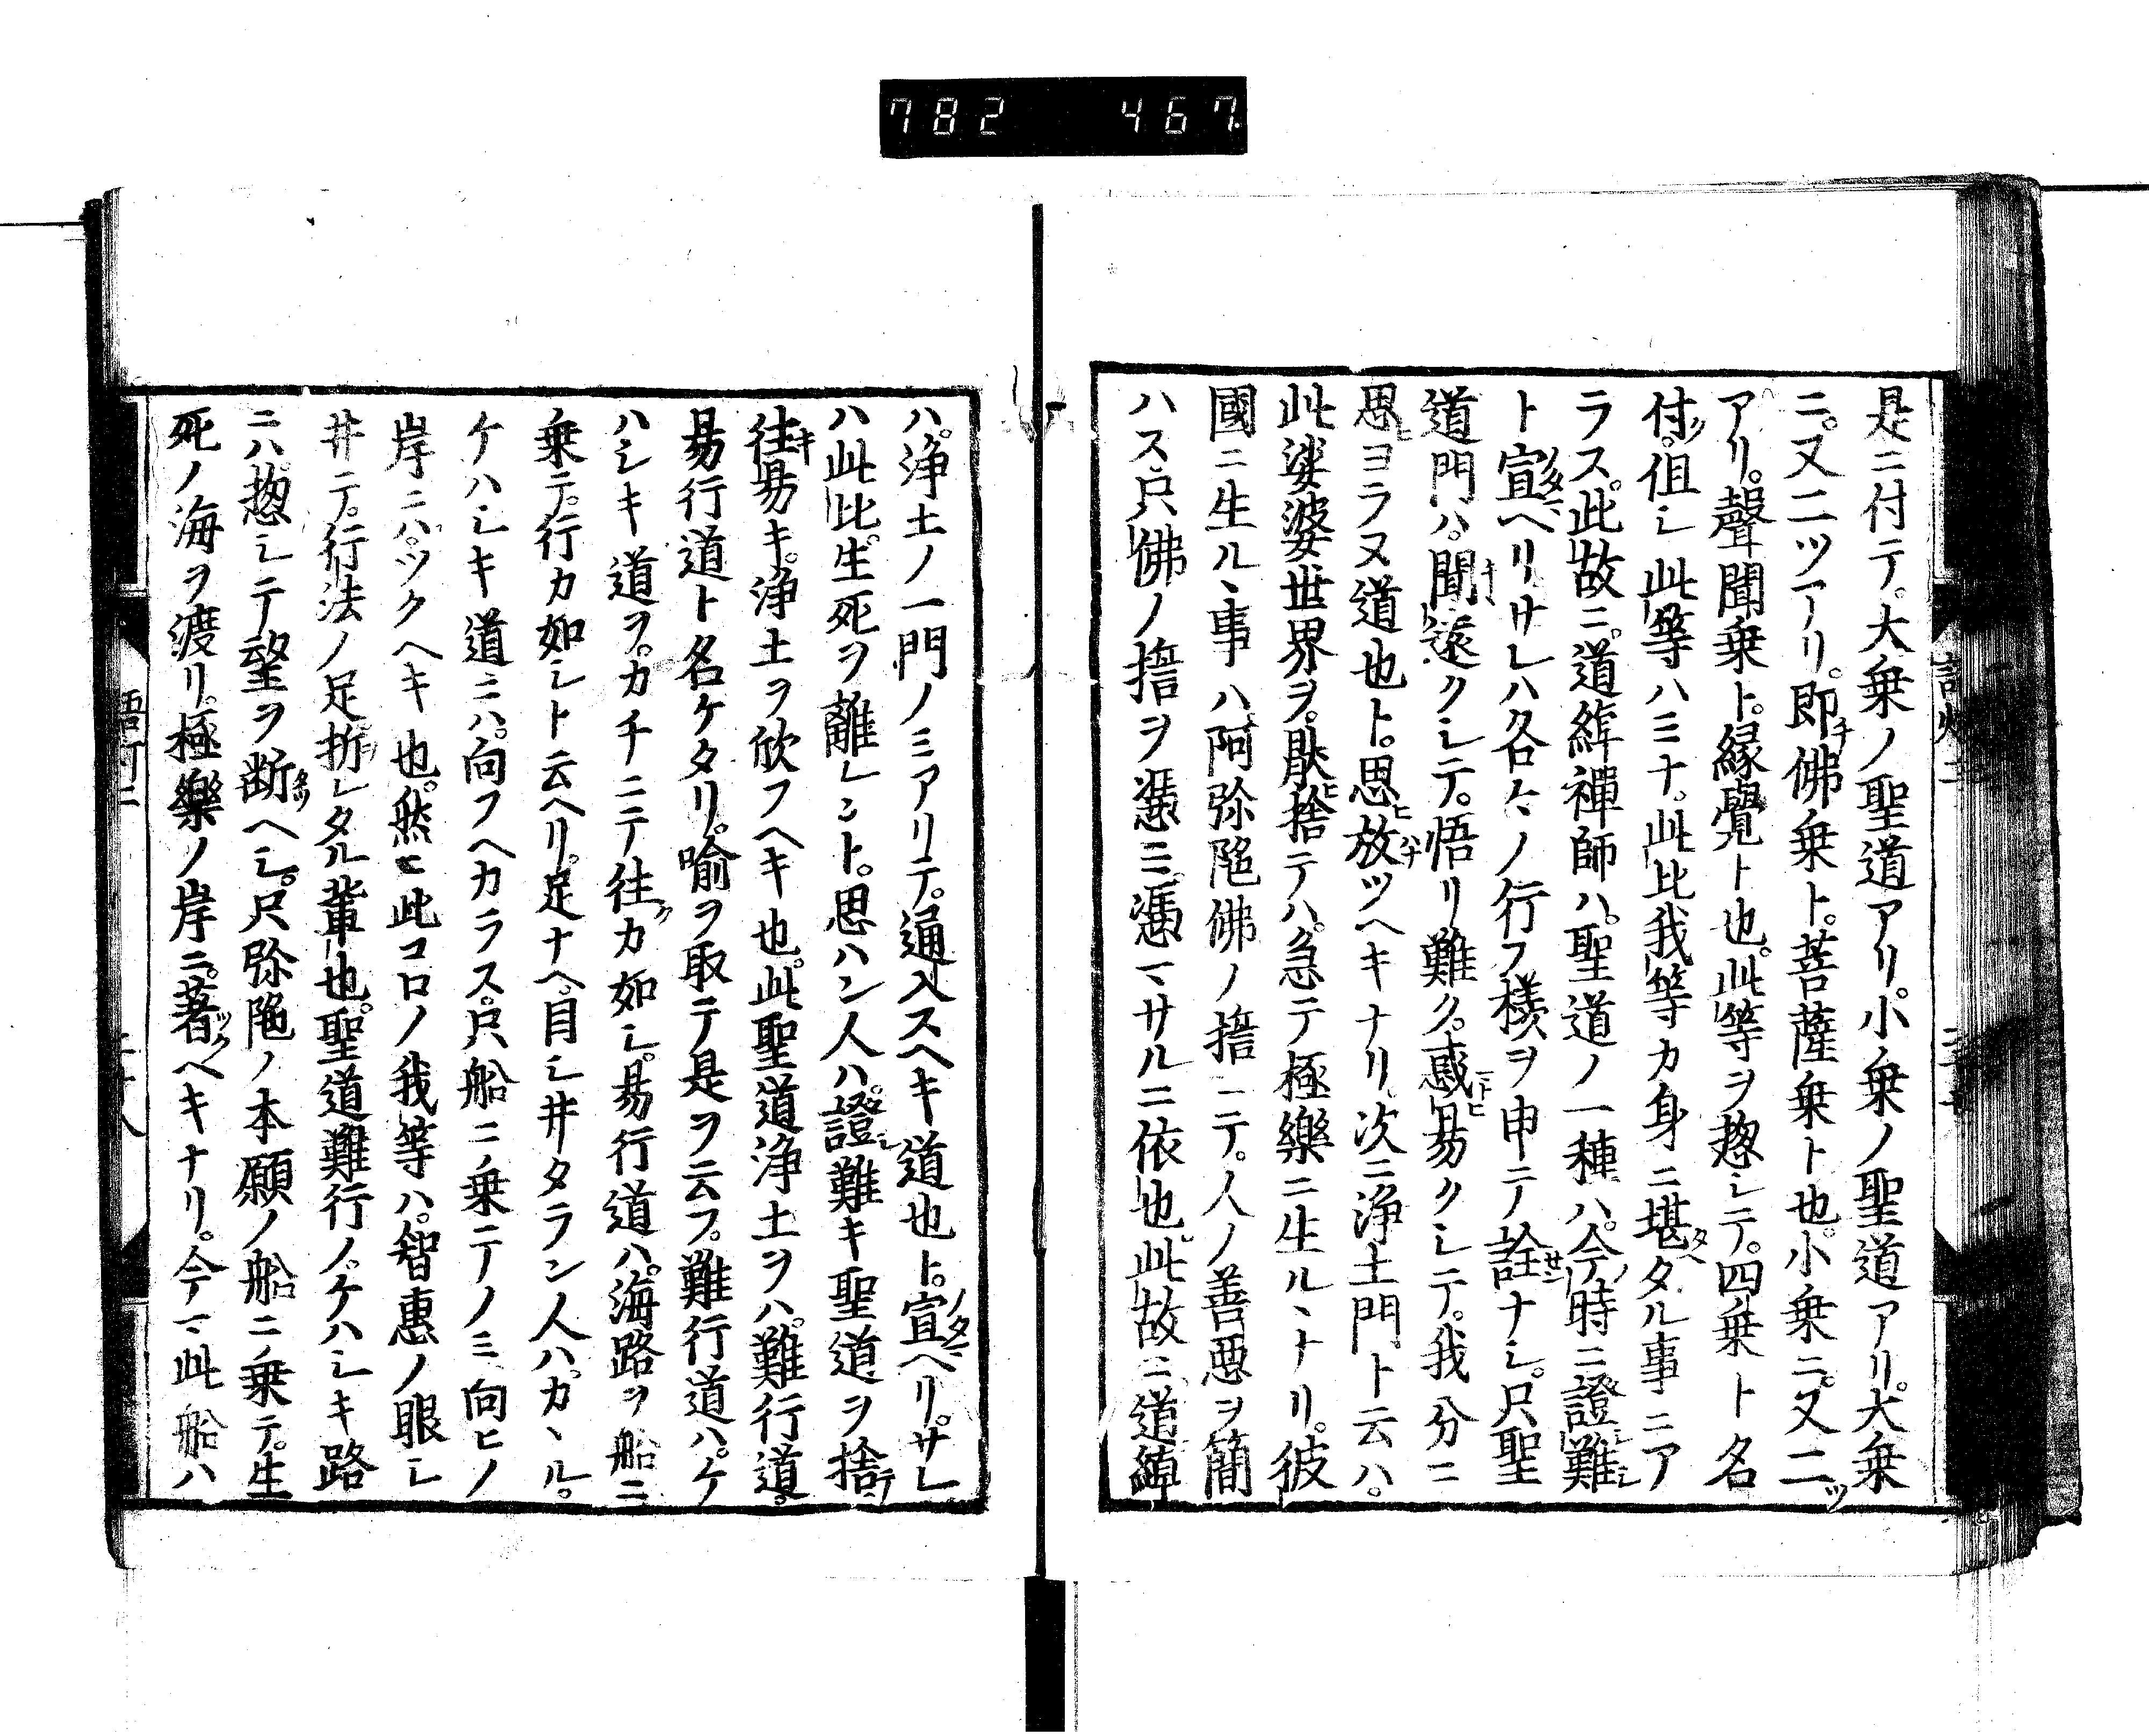 782 467
是ニ付テ。大乗ノ聖道アリ。小乗ノ聖道アリ。大乗
ニ。又二ツアリ。即チ佛乗ト。菩薩乗ト也。小乗ニ。又二ツ
アリ。聲聞乗ト。縁覺ト也。此等ヲ惣シテ。四乗ト名
付。但シ此等ハミナ。此比我等カ身ニ堪タル事ニア
ラス。此故ニ。道綽禪師ハ。聖道ノ一種ハ。今時ニ證難シ
ト宣ヘリサレハ各々ノ行フ様ヲ申テ詮ナシ。只聖
道門ハ。聞遠クシテ。悟リ難ク。惑易クシテ。我分ニ
思ヨラヌ道也ト。思放ツヘキナリ。次ニ浄土門ト云ハ。
此娑婆世界ヲ。厭捨テハ。急テ極樂ニ生ルヽナリ。彼
國ニ生ルヽ事ハ阿弥陀佛ノ
人ノ善悪ヲ簡
ハス只佛ノ
依也。此故ニ道綽
ハ。浄土ノ一門ノミアリテ。通入スヘキ道也ト。宣ヘリ。サレ
ハ此比。生死ヲ離レント。思ハン人ハ。證難キ聖道ヲ捨テ
往易キ。浄土ヲ欣フヘキ也。此聖道浄土ヲハ。難行道。
易行道ト名ケタリ。喩ヲ取テ是ヲ云フ。難行道ハ。ケ
ハシキ道ヲ。カチニテ往カ如シ。易行道ハ。海路ヲ船ニ
乗テ。行カ如シト云ヘリ。足ナヘ。目シ井タラン人ハ。カヽル。
ケハシキ道ニハ。向フヘカラス。只船ニノ乗テノミ向ヒノ
岸ニハ。ツクヘキ也。然ニ此コロノ我等ハ。智惠ノ眼シ
井テ。行法ノ足折レタル輩也。聖道難行ノ。ケハシキ路
ニハ。惣シテ望ヲ断ヘシ。只弥陀ノ本願ノ船ニ乗テ。生
死ノ海ヲ渡リ。極樂ノ岸ニ。著ヘキナリ。今此船ハ